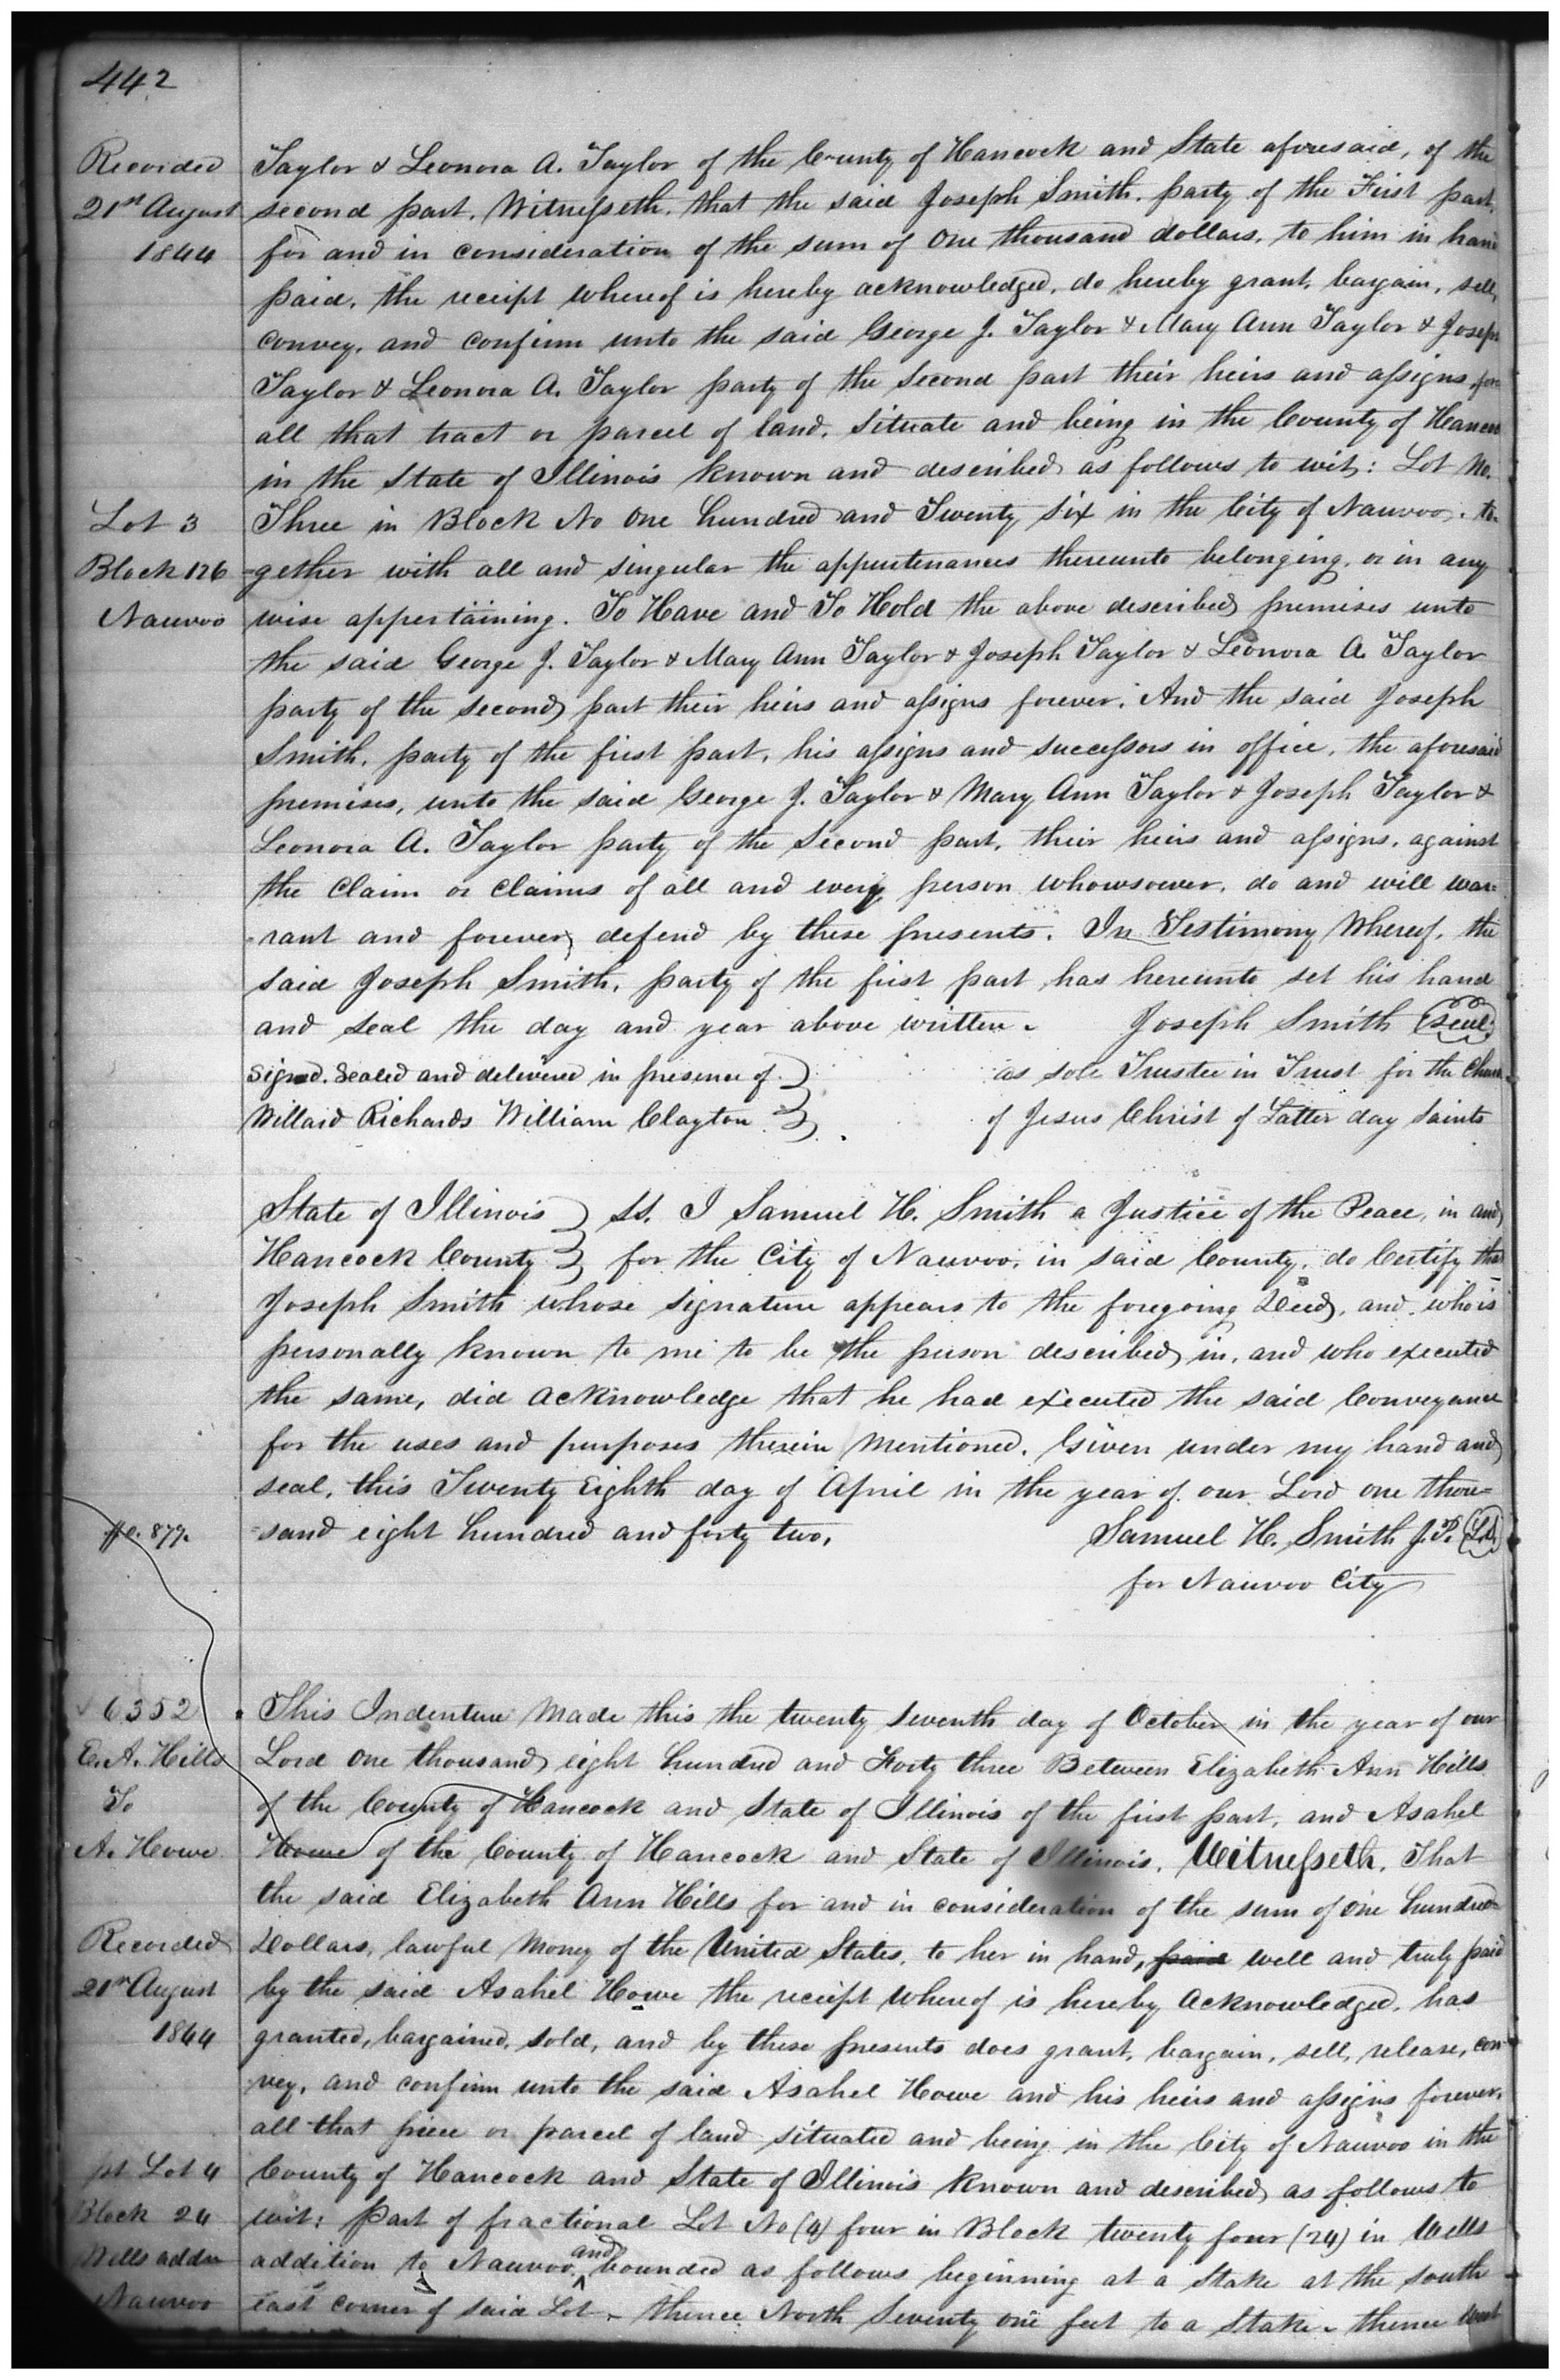 442
Recorded
21st August
1844
Taylor & Leonora A. Taylor of the County of Hancock and State aforesaid, of the
second part, Witnesseth, that the said Joseph Smith, party of the First part,
for and in consideration of the sum of One thousand dollars, to him in hand
paid, the receipt whereof is hereby acknowledged, do hereby grant, bargain, sell,
convey, and confirm unto the said George J. Taylor & Mary Ann Taylor & Joseph
Taylor & Leonora A. Taylor party of the Second part their heirs and assigns,
all that tract or parcel of land, situate and being in the County of Hancock
in the State of Illinois known and described as follows to wit: Lot No.
Lot 3
Block 126
Nauvoo
Three in Block No One hundred and Twenty Six in the City of Nauvoo, to-
=gether with all and singular the appurtenances thereunto belonging, or in any
wise appertaining. To Have and To Hold the above described premises unto
the said George J. Taylor & Mary Ann Taylor & Joseph Taylor & Leonora A. Taylor
party of the second part their heirs and assigns forever. And the said Joseph
Smith, party of the first part, his assigns and successors in office, the aforesaid
premises, unto the said George J. Taylor & Mary Ann Taylor & Joseph Taylor &
Leonora A. Taylor party of the Second part, their heirs and assigns, against
the Claim or Claims of all and every person whomsoever, do and will war=
=rant and forever defend by these presents. In Testimony Whereof, the
said Joseph Smith, party of the first part has hereunto set his hand
and seal the day and year above written. Joseph Smith (Seal)
Signed, Sealed and delivered in presence of } as sole Trustee in Trust for the Church
Willard Richards William Clayton } of Jesus Christ of Latter day Saints
State of Illinois } SS. I Samuel H. Smith a Justice of the Peace, in and
Hancock County } for the City of Nauvoo, in said County, do Certify that
Joseph Smith whose signature appears to the foregoing Deed, and who is
personally known to me to be the person described in, and who executed
the same, did acknowledge that he had executed the said Conveyance
for the uses and purposes therein Mentioned. Given under my hand and
seal, this Twenty Eighth day of April in the year of our Lord one thou=
=sand eight hundred and forty two. Samuel H. Smith J.P. (L.S.)
877.
for Nauvoo City
6352
E. A. Hills
To
A. Howe
This Indenture Made this the twenty Seventh day of October in the year of our
Lord One thousand eight hundred and Forty three Between Elizabeth Ann Hills
of the County of Hancock and State of Illinois of the first part, and Asahel
Howe of the County of Hancock and State of Illinois, Witnesseth, That
the said Elizabeth Ann Hills for and in consideration of the sum of One hundred
Recorded
21st August
1844
Dollars, lawful Money of the United States, to her in hand, paid well and truly paid
by the said Asahel Howe the receipt whereof is hereby Acknowledged, has
granted, bargained, sold, and by these presents does grant, bargain, sell, release, con-
vey, and confirm unto the said Asahel Howe and his heirs and assigns forever,
all that piece or parcel of land situated and being in the City of Nauvoo in the
pt Lot 4
Block 24
Wells addn
Nauvoo
County of Hancock and State of Illinois known and described as follows to
wit: Part of fractional Lot No (4) four in Block twenty four (24) in Wells
addition to Nauvoo, and bounded as follows beginning at a Stake at the south
East corner of said Lot - thence North Seventy one feet to a Stake - thence West